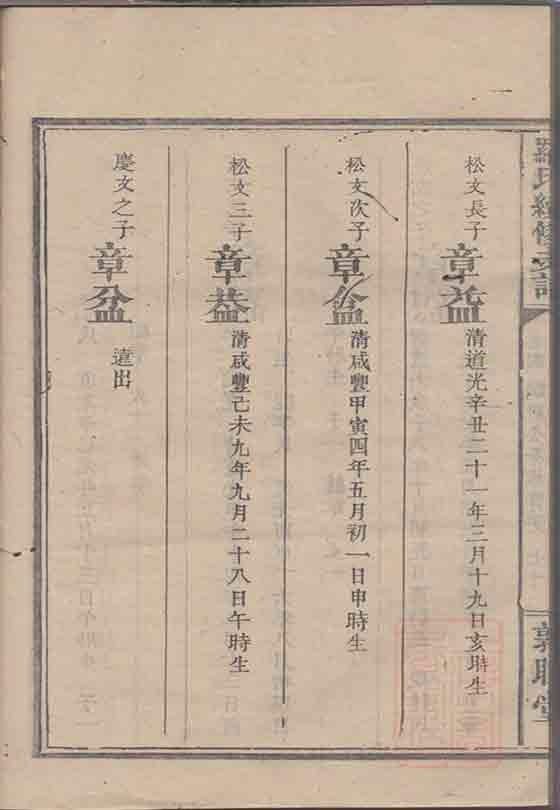 羅氏續修宗譜
松文長子 章益 清道光辛丑二十一年三月十九日亥時生
松文次子 章 清咸豐甲寅四年五月初一日申時生
松文三子 章 清咸豐己未九年九月二十八日午時生
慶文之子 章盆 遠出